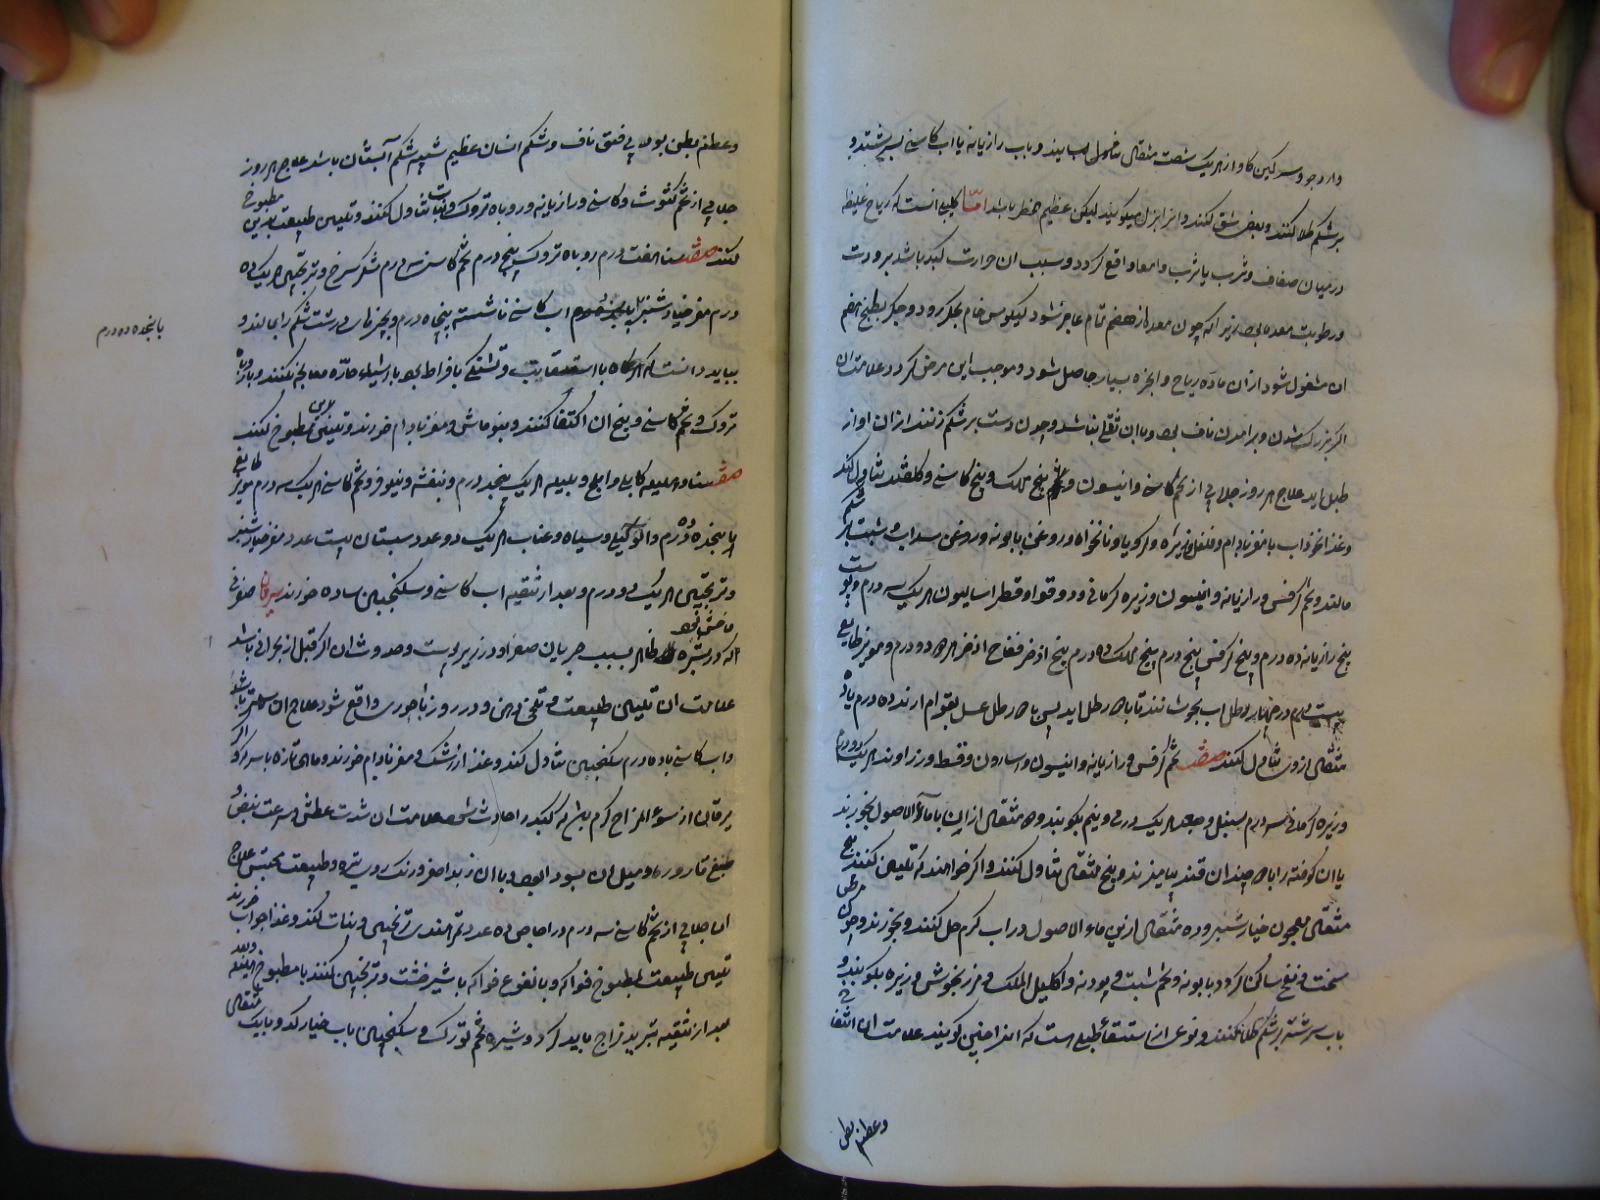 وارد جو و سرکین کاو از هریک شصت مثقال بسایند و باب رازیانه یا اب کاسنی بسرشند و
بر شکم طلا کنند و بعضی شق کنند و انرا بزل میکویند لیکن عظیم خطر باشد اما طبلی انست که ریاح غلیظه
در میان صفاق و ثرب یا ثرب و امعا واقع کردد و سبب ان حرارت کبد باشد و برودت
و رطوبت معده بود زیرا که چون معده از هضم تمام عاجز شود کیلوس خام بجکر رود و جکر بطبخ و هضم
ان مشغول شود از ان ماده ریاح و ابخره بسیار حاصل شود و موجب این مرض کردد علامت ان
اکر بزرک شدن و برامدن ناف بود و با ان ثقلی نباشد و چون دست بر شکم زنند از ان اواز
طبل اید علاج هر روز جلابی از تخم کاسنی و انیسون و بیخ مهک و بیخ کاسنی و کلقند تناول کند
و غذا نخوداب با مغز بادام و فلفل و زیره و کرویا و نانخواه و روغن بابونه و روغن سداب و شبت بر شکم
مالند و تخم کرفس و رازیانه و انیسون و زیره کرمانی و دوقو و فطراسالیون هریک سه درم و پوست
بیخ رازیانه ده درم و بیخ کرفس پنج درم بیخ مهک ده درم بیخ اذخر فقاح اذخر هر دو دو درم و مویز طایفی
بیست درم در چهار رطل اب بجوشانند تا با رطل اید پس با رطل عسل بقوام ارند ده درم یا ده
مثقال ازو تناول کنند صفت تخم کرفس و رازیانه و انیسون و اسارون و قسط و زراوند هریک دو درم
و زیره کرمانی سه درم سنبل و جعده هریک درمی و نیم بکوبند و ده مثقال از این با ماء الاصول بخورند
یا ان کوفته را با چندان قند بیامیزند و پنج مثقال تناول کنند و اکر خواهند که تلیین کنند پنج
مثقال معجون خیارشنبر و ده مثقال ازین ماء الاصول در اب کرم حل کنند و بخورند و چون مرض
سخت و نفخ ساکن کردد بابونه و تخم شبت و پودنه و اکلیل الملک و مرزنجوش و زیره بکوبند و
باب سرشته بر شکم طلا کنند و نوعی از استسقا طبلی است که انرا جنین کویند علامت ان انتفاخ
و عظم بطن
و عظم بطن بود بی فتق ناف و شکم انسان عظیم شبیه شکم آبستان باشد علاج هر روز
جلابی از تخم کثوث و کاسنی و رازیانه و روباه تروک و نبات تناول کنند و تلیین طبیعت بدین مطبوخ
کنند صفت سنا هفت درم روباه تروک پنج درم تخم کاسنی سه درم شکر سرخ و ترنجبین هریک ده
درم مغز خیارشنبر پانزده درم اب کاسنی ناشسته پنجاه درم و بچیزهای درشت شکم را بمالند و
بباید دانست که هرکاه با استسقا تب و تشنکی بافراط بود باشیاء حاره معالجه نکنند و بارزیانه
تروک و تخم کاسنی و بیخ ان اکتفا کنند و بنوماش و مغز بادام خورند و تلیین بدین مطبوخ کنند
صفت سنا و هلیله کابلی و املج و بلیله هریک پنج درم و بنفشه و نیلوفر و تخم کاسنی هریک سه درم مویز طایفی
پانجده درم و الو کیلی و سیاه و عناب هریک دو عدد سبستان بیست عدد مغز خیارشنبر
و ترنجبین هریک دو درم و بعد از تنقیه اب کاسنی و سکنجبین ساده خورند یرقان صفراوی
انکه در بشره ظاهر بسبب جریان صفرا در زیر پوست و حدوث ان اکر قبل از بحران باشد
علامت ان تلیین طبیعت و تلخی دهن و در روز باحوری واقع شود علاج ان
و اب کاسنی با ده درم سکنجبین تناول کند و غذا زرشک و مغز بادام خورند و ماهی تازه با سرکه و
یرقان از سوء المزاج کرم باشد که کبد را حادث شود علامت ان شدت عطش و سرعت نبض و
صبغ قاروره و میل ان بسواد بود و با ان زبد اصفر و رنک روی تیره و طبیعت محتبس علاج
ان جلابی از تخم کاسنی سه درم و اجاص ده عدد تمر هندی ترنجبین و نبات کند و غذا جواب خورند
تلیین طبیعت بمطبوخ فواکه و با نقوع فواکه با شیرخشت و ترنجبین کنند یا مطبوخ هلیله و بعد
بعد از تنقیه تبرید مزاج باید کرد و شیره تخم تورک و سکنجبین باب خیار کدو با یک مثقال
پانجده ده درم